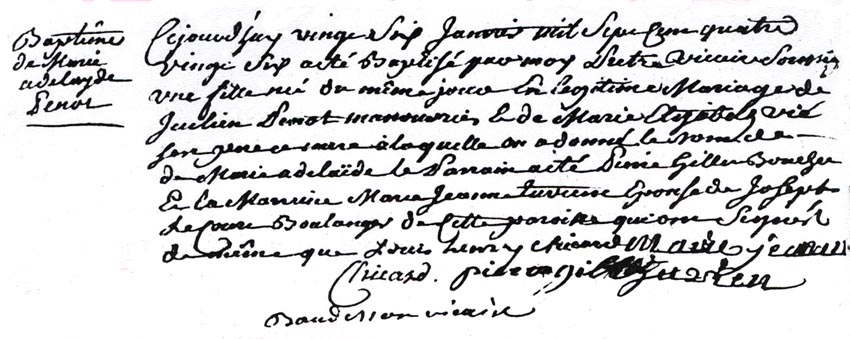 Baptême
de Marie
adelayde
Penot
Cejourd'huy vingt six Janvier mil Sept Cent quatre
vingt Six a été Baptisé par moy Prêtre vicaire Soussigné
une fille né du même jour En legitime Mariage de
Julien Penot manouvrier Et de Marie Elizabeth
sa mere a laquelle on a donné le nom de
de Marie adelaïde le Parrain a été Pierre Gilles Boucher
Et la Marraine Marie Jeanne turvien Epouse de Joseph
Boulanger de Cette paroisse qui ont Signés
de même que Louis henry chicard Marie jeanne
Chicard . pierre gilles turvien
Baudesson vicaire